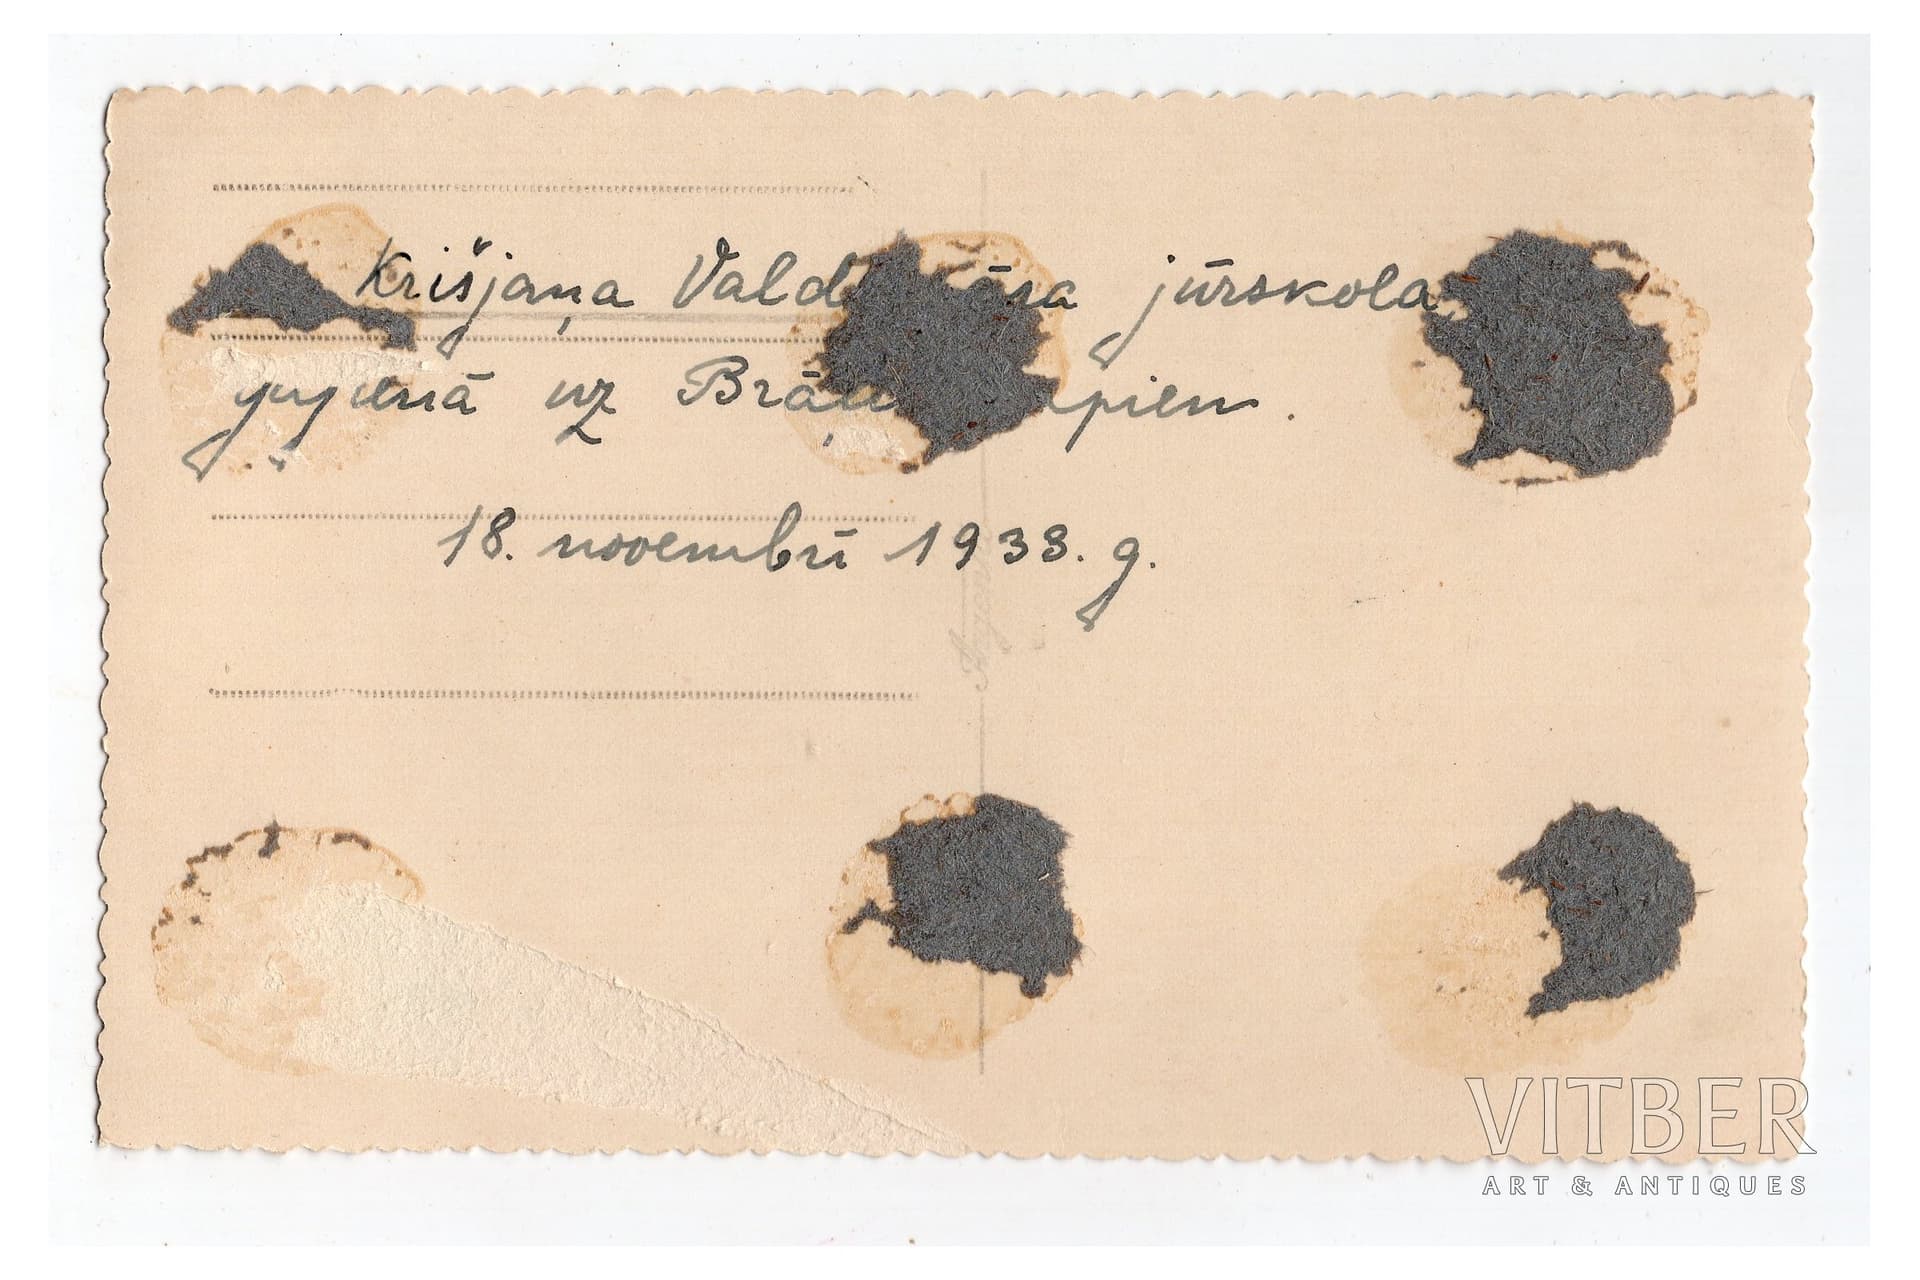 Krišjaņa Vald āra jūrskola
gājienā uz Brāļu apiem.
18. novembrī 1933. g.
VITBER
ART & ANTIQUES